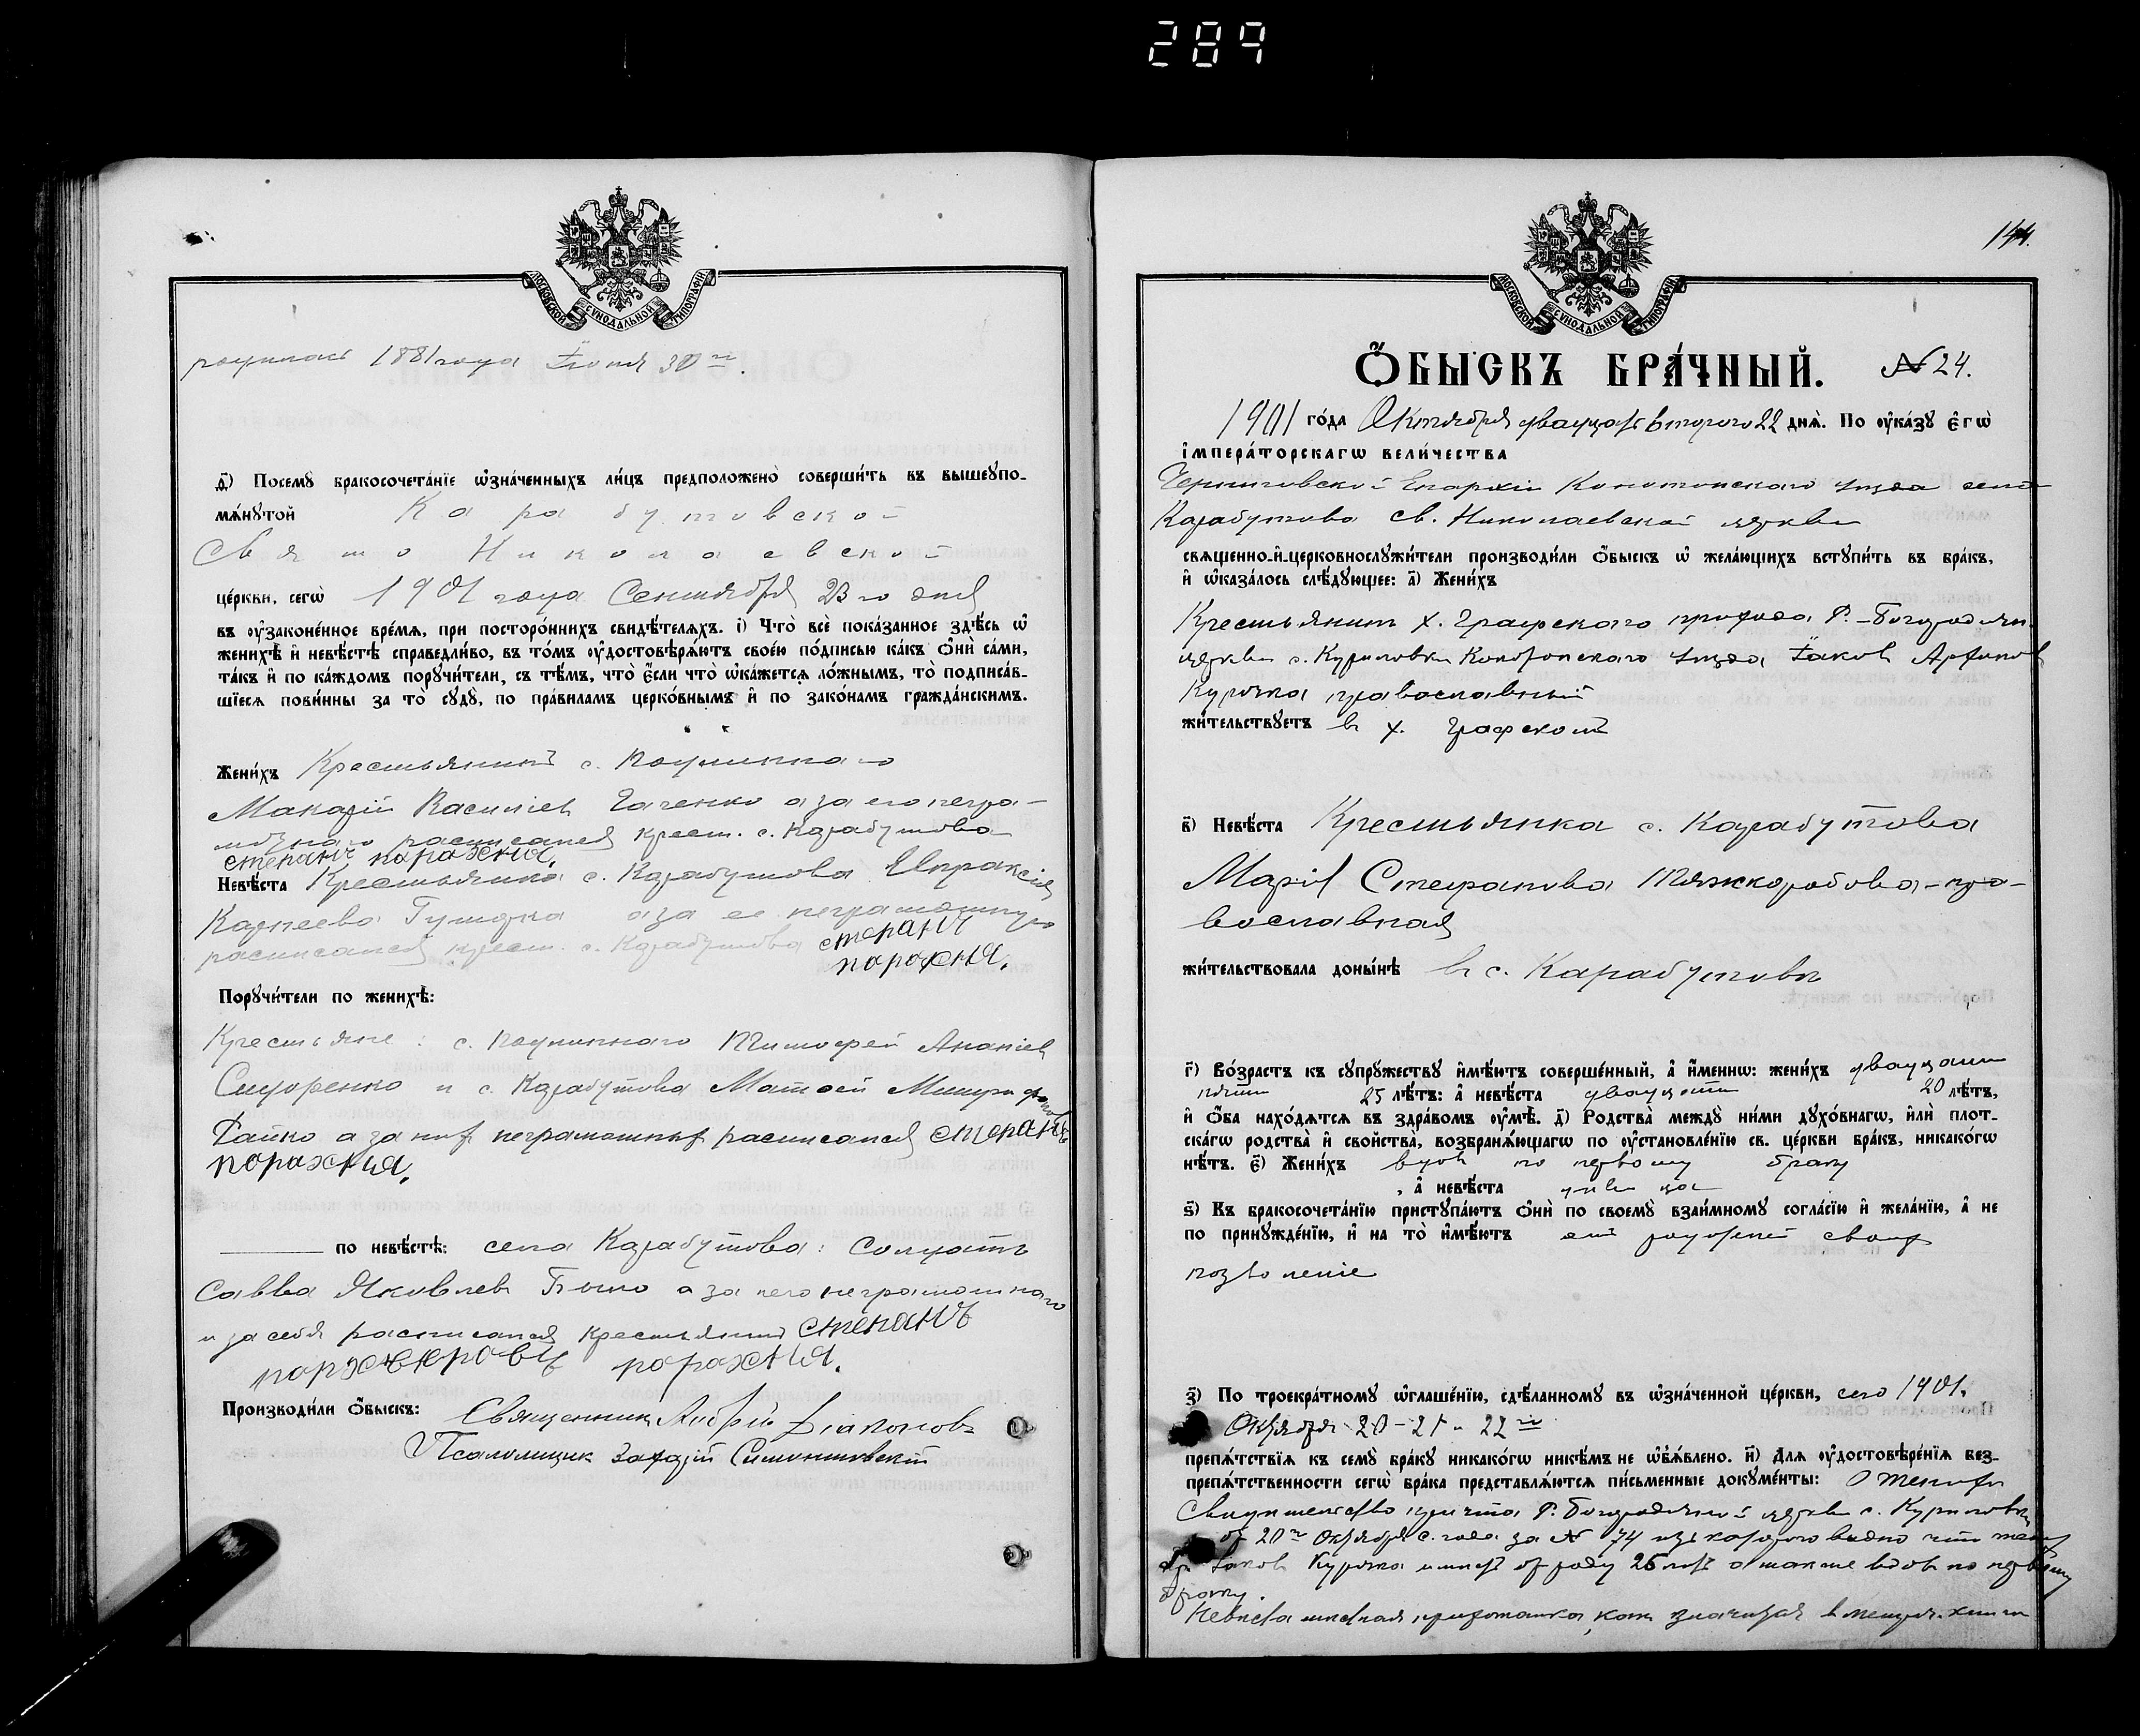 289
МОСКОВСКОЙ СѴНОДАЛЬНОЙ ТИПОГРАФІИ
родилась 1881 года Іюня 30 го.
д҃) Посемꙋ бракосочета́нїе ѡ҆зна́ченныхъ ли́цъ предположено̀ соверши́ть въ вышеꙋпо-
мѧ́нꙋтой Карабутовской
Свято Николаевской
це́ркви, сегѡ̀ 1901 года Сентября 23 го дня
въ ᲂу҆законе́нное вре́мѧ, при посторо́ннихъ свидѣ́телѧхъ. і҃) Что̀ всѐ пока́занное здѣ́сь ѡ҆
женихѣ̀ и҆ невѣ́стѣ справедли́во, въ то́мъ ᲂу҆достовѣрѧ́ютъ свое́ю по́дписью ка́къ ѻ҆нѝ са́ми,
та́къ и҆ по ка́ждомъ порꙋчи́тели, съ тѣ́мъ, что̀ є҆́сли что̀ ѡ҆ка́жетсѧ ло́жнымъ, то̀ подписа́в-
шїесѧ пови́нны за то̀ сꙋдꙋ̀, по пра́виламъ церко́внымъ и҆ по зако́намъ гражда́нскимъ.
Жени́хъ Крестьянинъ с.
Макарій Василіев Гаченко а за его негра-
мотнаго расписался крест. с. Карабутова
степанъ порахня.
Невѣ́ста Крестьянка с. Карабутова Евпраксія
Карнеева а за ее неграмотную
расписался крест. с. Карабутова степанъ
порахня.
Порꙋчи́тели по женихѣ̀:
Крестьяне: с. Тимофей Ананіев
Сидоренко и с. Карабутова Матвей
а за них неграмотных расписался степанъ
порахня.
по невѣ́стѣ: села Карабутова: Солдатъ
Савва Яковлев а за него неграмотнаго
и за себя расписался крестьянинъ степанъ
порахня.
Производи́ли ѻ҆́быскъ: Священник Андрей Діаконов
Псаломщик Захарій Симонтовскій
144.
МОСКОВСКОЙ СѴНОДАЛЬНОЙ ТИПОГРАФІИ
Ѻ҆́БЫСКЪ БРА́ЧНЫЙ. № 24.
1901 го́да Октября двадцать второго 22 днѧ̀. По ᲂу҆ка́зꙋ є҆гѡ̀
і҆мпера́торскагѡ вели́чества
Черниговской Епархіи Конотопскаго уезда села
Карабутова св. Николаевской церкви
свѧщенно-и҆-церковнослꙋжи́тели производи́ли ѻ҆́быскъ ѡ҆ жела́ющихъ встꙋпи́ть въ бра́къ,
и҆ ѡ҆каза́лось слѣ́дꙋющее: а҃) Жени́хъ
Крестьянин х. Графского прихода Р.-Богородичн.
церкви с. Куриловки уезда Іаков
Курочка православный
жи́тельствꙋетъ в х. Графском
в҃) Невѣ́ста Крестьянка с. Карабутова
Марія Стефанова Тяжкоробова - пра-
вославная
жи́тельствовала доны́нѣ в с. Карабутове
г҃) Во́зрастъ къ сꙋпрꙋ́жествꙋ и҆мѣ́ютъ соверше́нный, а҆ и҆́меннѡ: жени́хъ двадцати
пяти 25 лѣ́тъ: а҆ невѣ́ста двадцати 20 лѣ́тъ,
и҆ ѻ҆́ба нахо́дѧтсѧ въ здра́вомъ ᲂу҆мѣ̀. д҃) Родства̀ междꙋ̀ ни́ми дꙋхо́внагѡ, и҆лѝ плот-
ска́гѡ родства̀ и҆ сво́йства, возбранѧ́ющагѡ по ᲂу҆становле́нїю св. це́ркви бра́къ, никако́гѡ
нѣ́тъ. є҃) Жени́хъ вдов по первому браку
, а҆ невѣ́ста девица
ѕ҃) Къ бракосочета́нїю пристꙋпа́ютъ ѻ҆нѝ по своемꙋ̀ взаи́мномꙋ согла́сїю и҆ жела́нїю, а҆ не
по принꙋжде́нїю, и҆ на то̀ и҆мѣ́ютъ от родителей своих
позволеніе
з҃) По троекра́тномꙋ ѡ҆глаше́нїю, сдѣ́ланномꙋ въ ѡ҆зна́ченной це́ркви, сего 1901.
Октября 20 - 21 и 22 го
препѧ́тствїѧ къ семꙋ̀ бра́кꙋ никако́гѡ никѣ́мъ не ѡ҆б̾ѧ́влено. и҃) Длѧ ᲂу҆достовѣре́нїѧ без-
препѧ́тственности сегѡ̀ бра́ка представлѧ́ютсѧ пи́сьменные докꙋме́нты: О женихе
Свидетельство причта Р. Богородичной церкви с. Куриловки
от 20 го Октября с. года за № 74 из которого видно что жених
Іаков Курочка имеет от роду 25 лет а также вдов по первому
браку.
Невеста местная прихожанка, как значится в метрич. книге